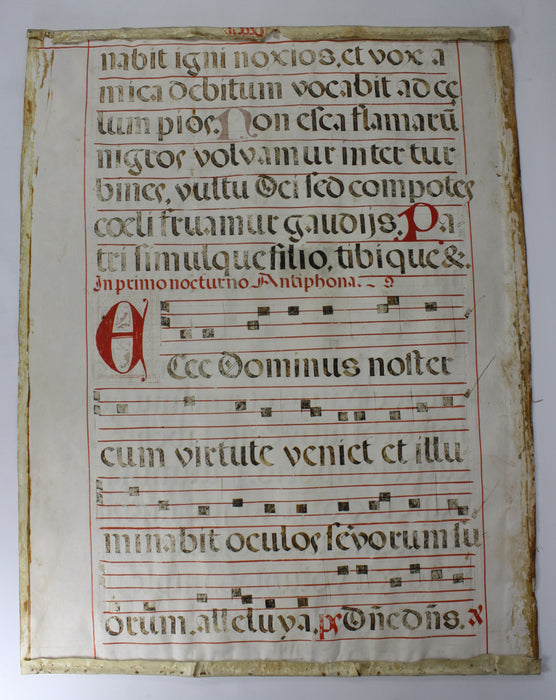 nabit igni noxios, et vox a
mica debitum vocabit ad cę
lum pios, Non esca flamarū
nigros volvamur inter tur
bines, vultu Dei sed compotes
cœli fruamur gaudijs. Pa
tri simulque filio, tibique &.
In primo nocturno Antiphona.
Ecce Dominus noster
cum virtute veniet et illu
minabit oculos sẽvorum su
orum. alleluya. ps Dñe dñs.